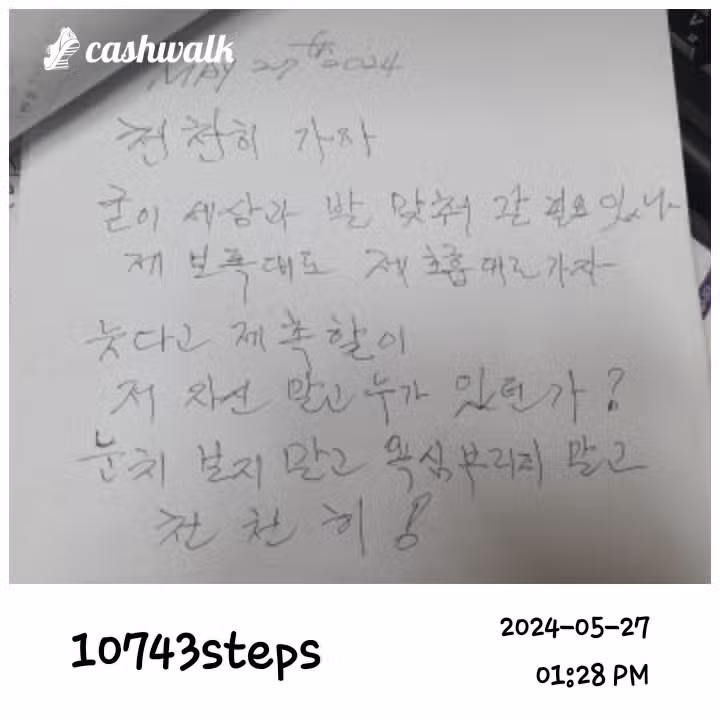 cashwalk
MAY 27th 2024
천천히 가자
굳이 세상과 발 맞춰 갈 필요 있나
제 보폭대로 제 호흡대로 가자
늦다고 제촉할 이
저 자신 말고 누가 있던가?
눈치 보지 말고 욕심부리지 말고
천천히!
10743steps
2024-05-27
01:28 PM